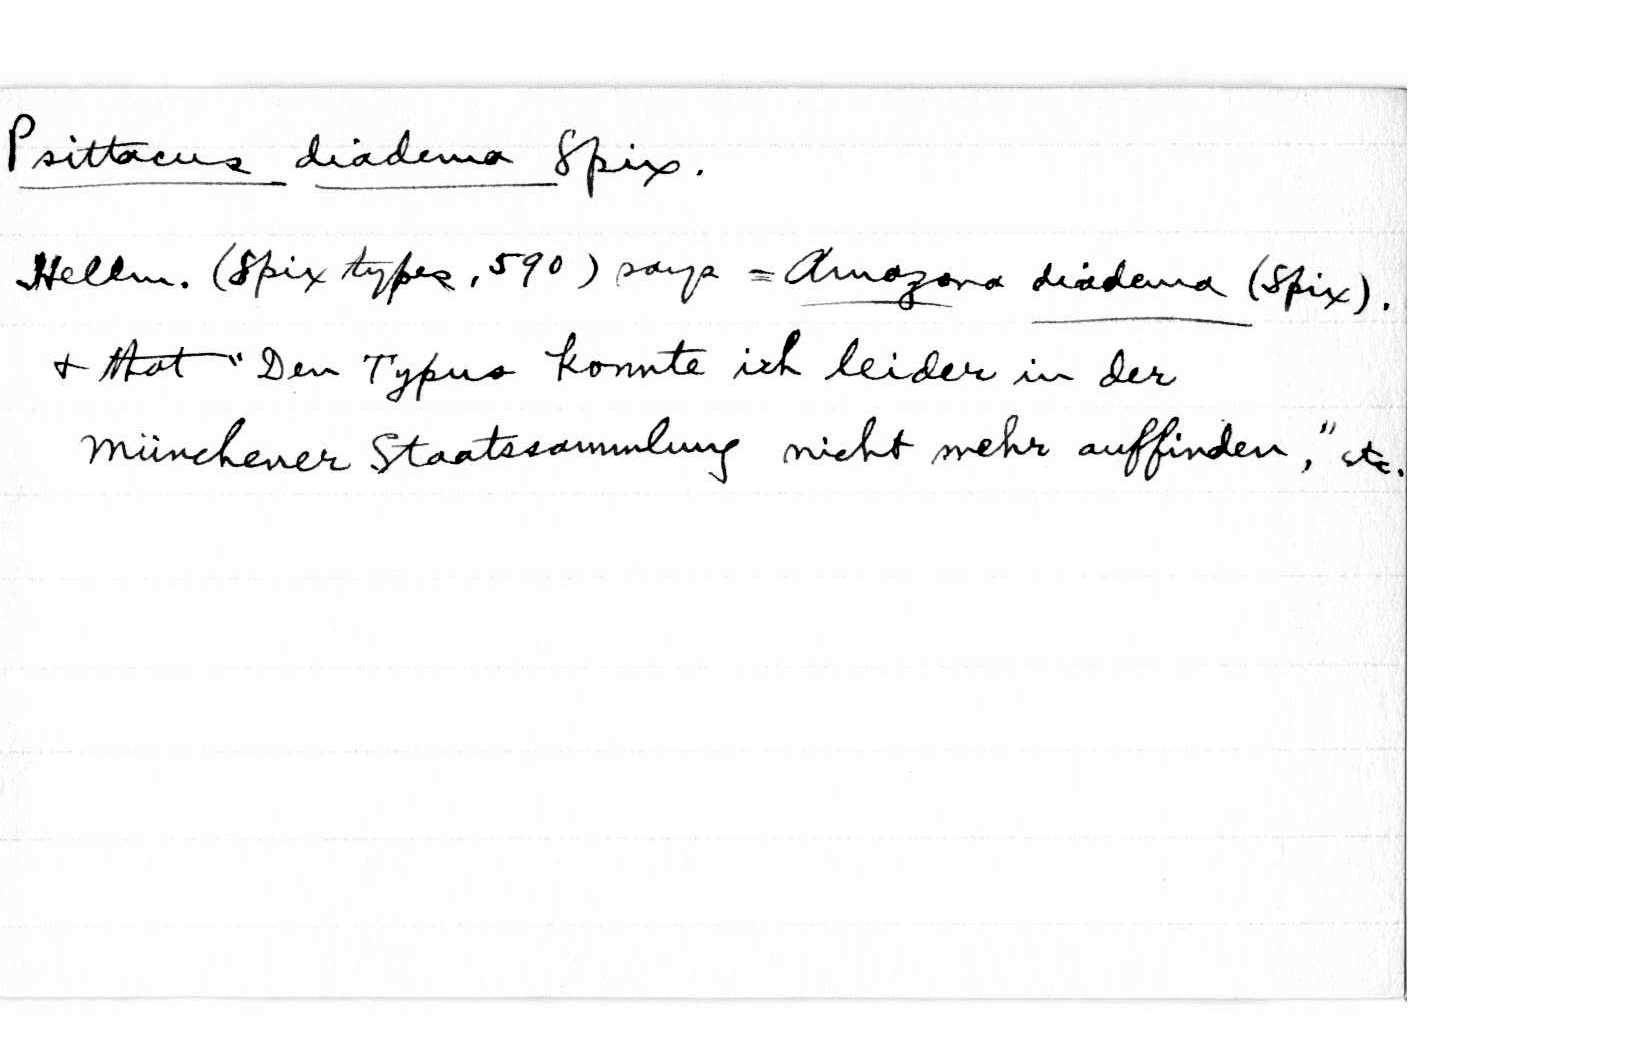 Psittacus diadema Spix.
Hellm. (Spix types, 590) says = Amazona diadema (Spix).
+ that "Den Typus konnte ich leider in der
Münchener Staatssammlung nicht mehr auffinden," etc.